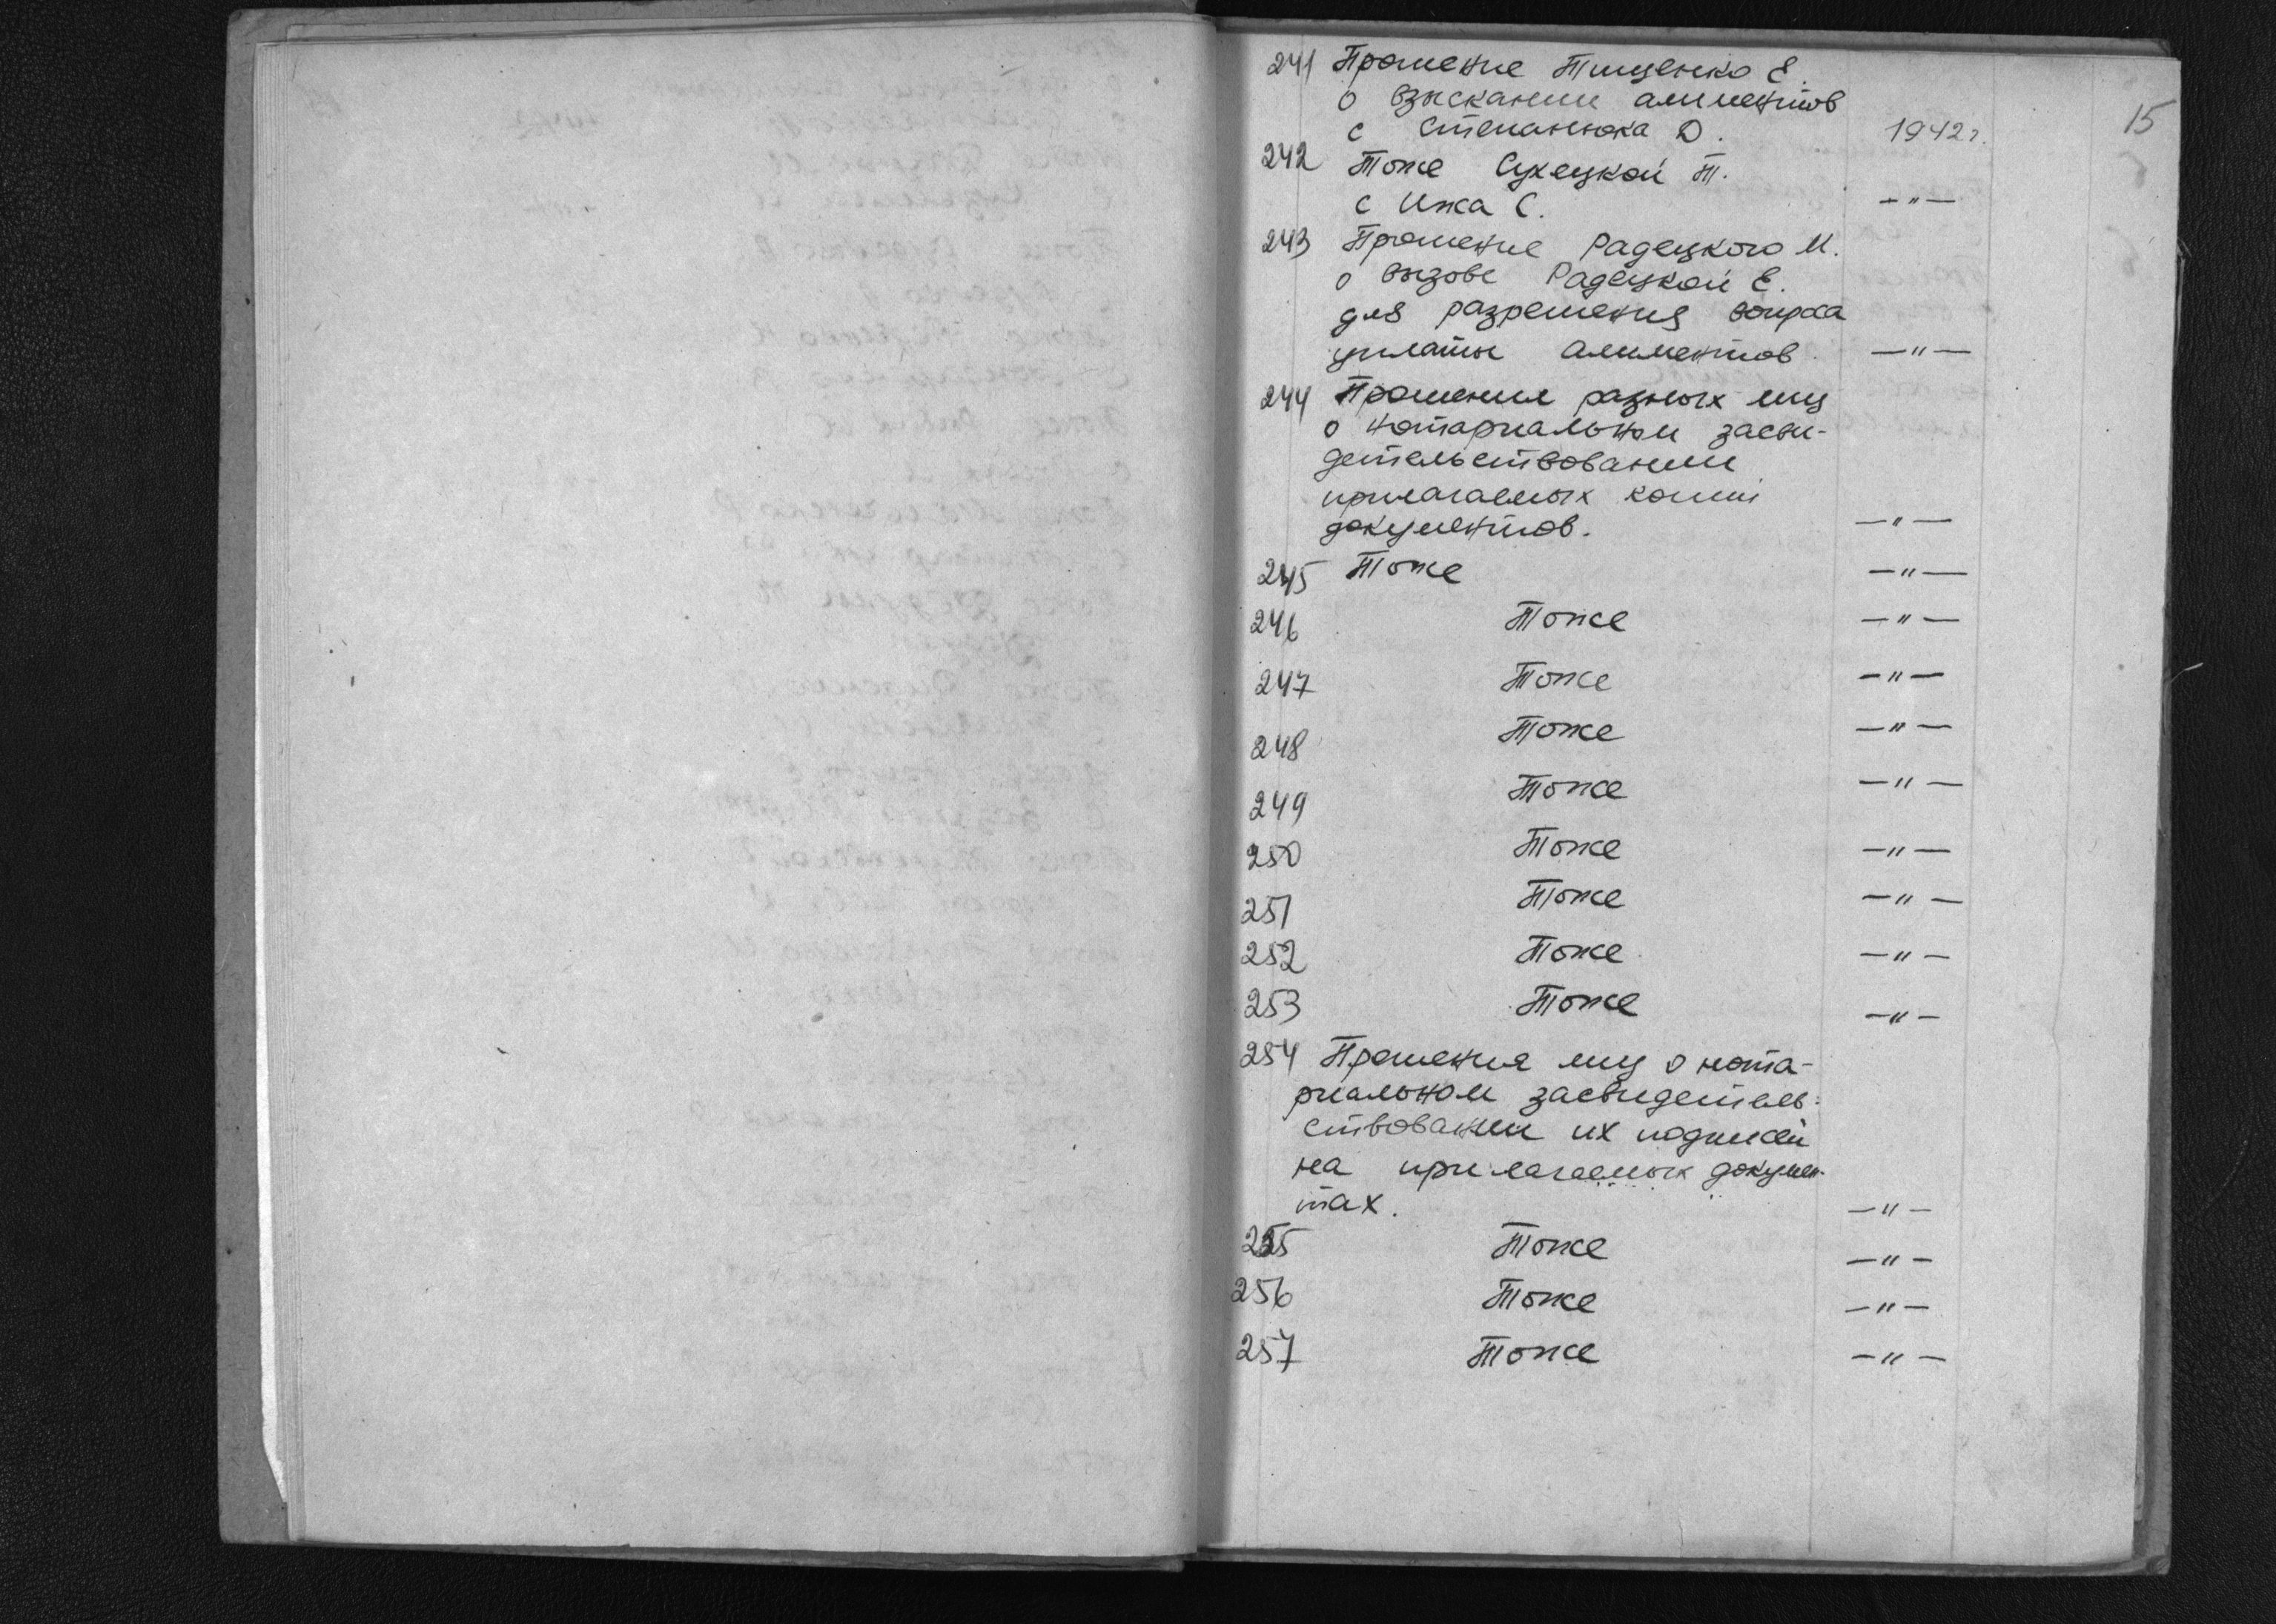 15
241 Прошение Тищенко Е.
о взыскании алиментов
с Степанюка D. 1942г.
242 Тоже Сухецкой Т.
с Ижа С. —"—
243 Прошение Радецкого М.
о вызове Радецкой Е.
для разрешения вопроса
уплаты алиментов. —"—
244 Прошения разных лиц
о нотариальном засви-
детельствовании
прилагаемых копий
документов. —"—
245 Тоже —"—
246 Тоже —"—
247 Тоже —"—
248 Тоже —"—
249 Тоже —"—
250 Тоже —"—
251 Тоже —"—
252 Тоже —"—
253 Тоже —"—
254 Прошения лиц о нота-
риальном засвидетель-
ствовании их подписей
на прилагаемых докумен-
тах. —"—
255 Тоже —"—
256 Тоже —"—
257 Тоже —"—